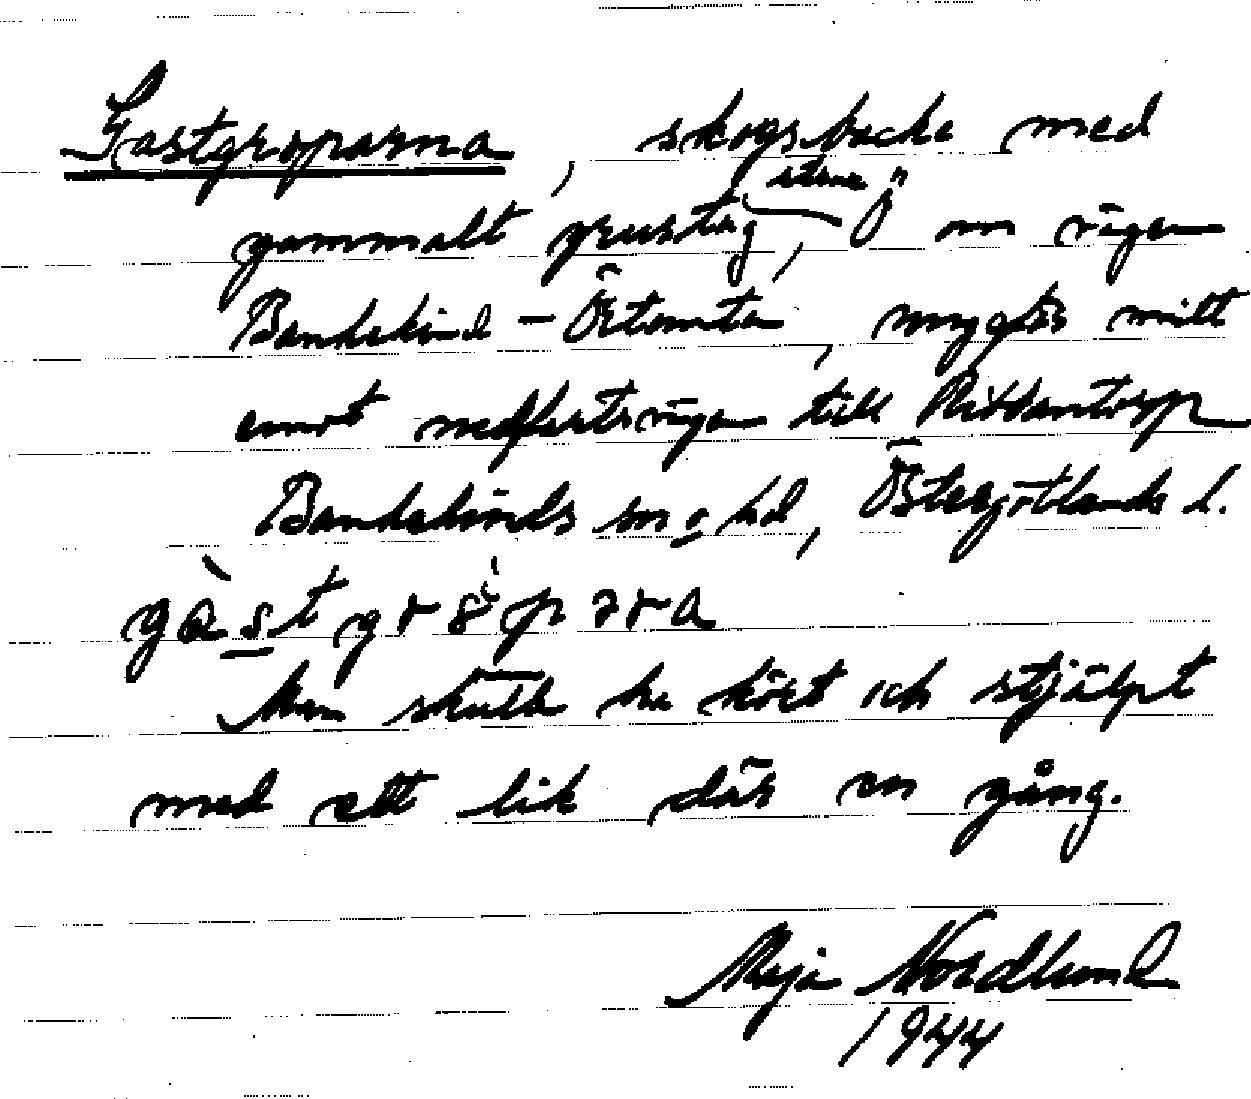 Gastgroparna, skogsbacke med
gammalt grustag, Ö om vägen
Bankekind – Örtomta, mitt
emot till
Bankekinds sn o hd, Östergötlands l.
Man skulle ha kört ich stjälpt
med ett lik där en gång.
Maja Nordlund
1944